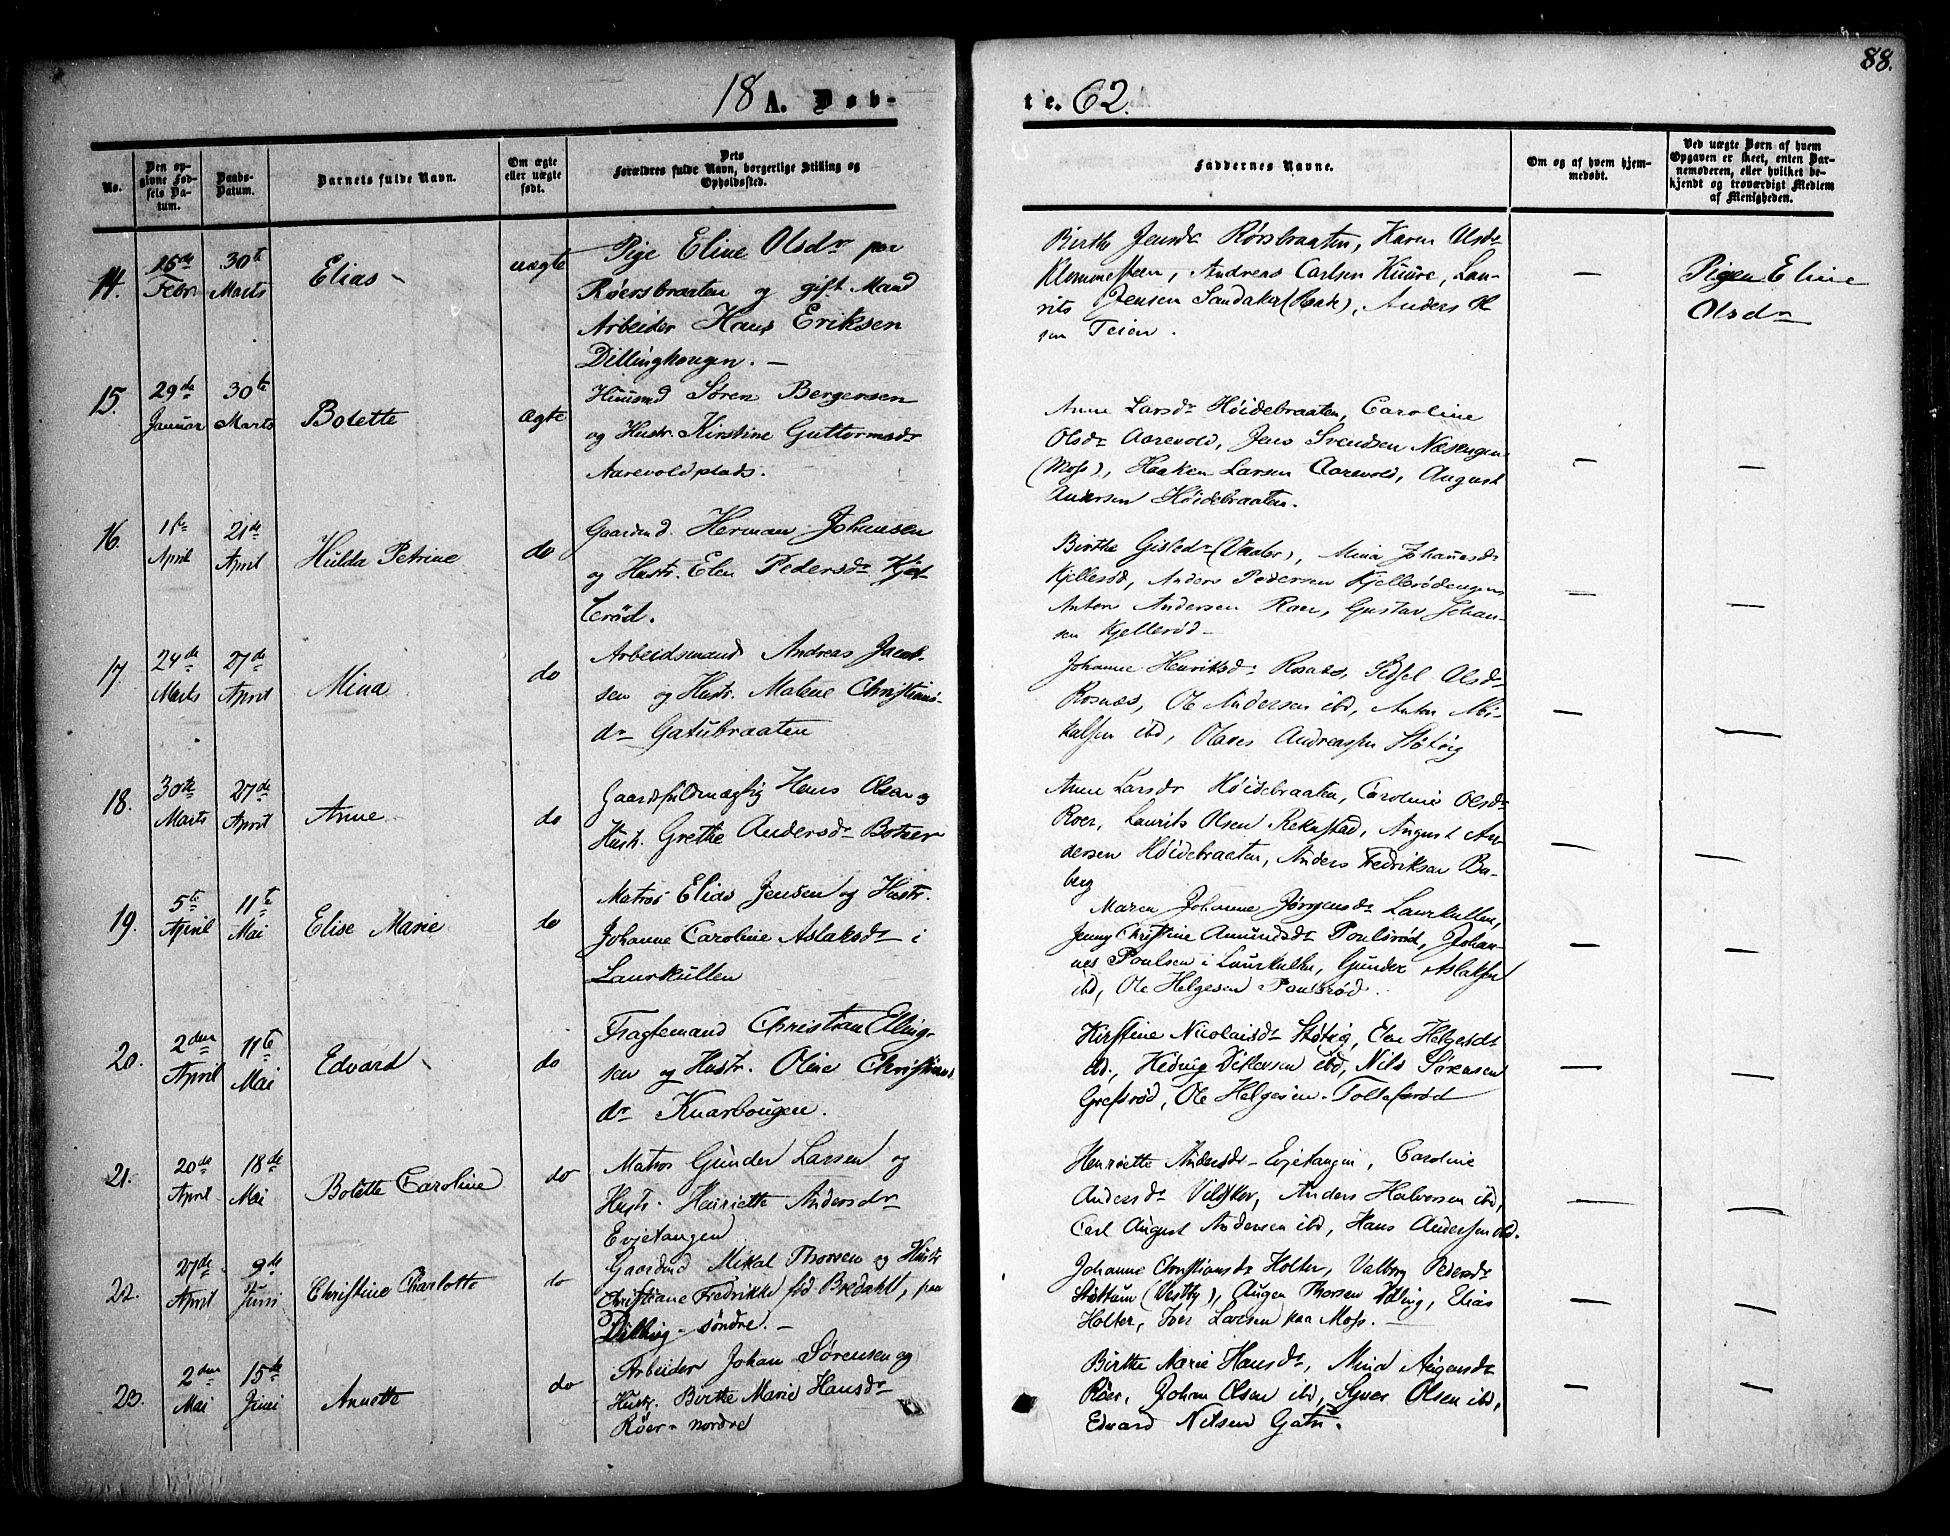 88.
18 A. Døb-
te. 62.
No.
Den op-
givne Fød-
sels Da-
tum.
Daabs-
Datum.
Barnets fulde Navn.
Om ægte
eller uægte
født.
Dets
Forældres fulde Navn, borgerlige Stilling og
Opholdssted.
Faddernes Navne.
Om og af hvem hjem-
medøbt.
Ved uægte Børn af hvem
Opgaven er skeet, enten Bar-
nemoderen, eller hvilket be-
kjendt og troværdigt Medlem
af Menigheden.
14.
15de
Febr
30te
Marts
Elias
uægte
Pige Eline Olsdr paa
Røersbraaten og gift Mand
Arbeider Hans Eriksen
Dillinghougen. —
Birthe Jensdr Rørsbraaten, Karen Olsdr
Klommesteen, Andreas Carlsen Kuure, Lau-
rits Jensen Sandaker, Anders Ol
sen Teien.
—
Pigen Eline
Olsdr
15.
29de
Januar
30te
Marts
Bolette
ægte
Huusmd Søren Bergersen
og Hustr. Kirstine Guttormsdr
Aarevoldplads.
Anne Larsdr Høidebraaten, Caroline
Olsdr Aarevold, Jens Svendsen Næsengen
(Moss), Haaken Larsen Aarevold, August
Andersen Høidebraaten.
—
—
16.
1ste
April
21de
April
Hulda Petrine
do
Gaardmd. Herman Johansen
og Hustr. Elen Pedersdr Kjel-
lerød.
Birthe Gislesdr (Vaaler), Mina Johannesdr
Kjellerød, Anders Pedersen Kjellerødengen
Anton Andersen Roer, Gustav Johan-
sen Kjellerød —
—
—
17
24de
Marts
27de
April
Mina
do
Arbeidsmand Andreas Jacob-
sen og Hustr. Malene Christians-
dr Gatubraaten
Johanne Henriksdr Rosnæs, Sidsel Olsdr
Rosnæs, Ole Andersen ibd, Anton Mi-
kalsen ibd, Olaves Andreassen Støtvig
—
—
18.
30te
Marts
27de
April
Anne
do
Gaardfuldmægtig Hans Olsen og
Hustr. Grethe Andersdr Botner
Anne Larsdr Høidebraaten, Caroline Olsdr
Roer, Laurits Olsen Rekustad, August An-
dersen Høidebraaten, Anders Fredriksen Ba-
berg
—
—
19.
5te
April
11te
Mai
Elise Marie
do
Matros Elias Jensen og Hustr.
Johanne Caroline Aslaksdr i
Laurkullen
Maren Johanne Jørgensdr Laurkullen,
Jenny Christine Amundsdr Poulsrød, Johan-
nes Poulsen i Laurkullen, Gunder Aslaksen
ibd, Ole Helgesen Poulsrød.
—
—
20.
2den
April
11te
Mai
Edvard
do
Fragtemand Christian Elling-
sen og Hustr. Oline Christians
dr Knarbougen.
Kirstine Nicolaisdr Støtvig, Elen Helgesdr
ibd., Hedvig Ditlevsen ibd, Nils Sørensen
Grefsrød, Ole Helgesen Tollefsrød
—
—
21.
20de
April
18de
Mai
Bolette Caroline
do
Matros Gunder Larsen og
Hustr. Henriette Andersdr
Evjetangen
Henriette Andersdr Evjetangen, Caroline
Andersdr Vildskov, Anders Halvorsen ibd,
Carl August Andersen ibd, Hans Andersen ibd.
—
—
22.
27de
April
9de
Juni
Christine Charlotte
do
Gaardmd Mikal Thorsen og Hustr
Christiane Fredrikke fød Bredahl, paa
Dilling søndre. —
Johanne Christiansdr Holter, Valborg Pedersdr
Støttum (Vestby), Augen Thorsen Dilling, Elias
Holter, Iver Larsen paa Moss. —
—
—
23.
2den
Mai
15de
Juni
Annette
do
Arbeider Johan Sørensen og
Hustr. Birthe Marie Hansdr
Røer nordre
Birthe Marie Hansdr, Mina Augensdr
Røer, Johan Olsen ibd, Syver Olsen ibd,
Edvard Nilsen Gatu.
—
—